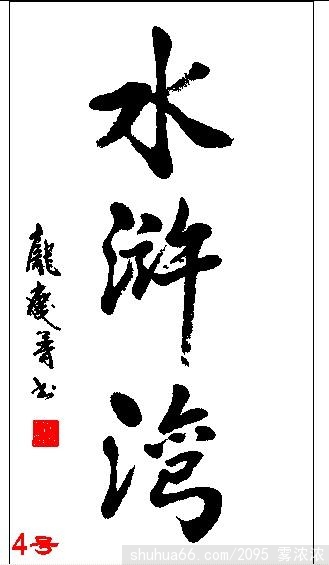 水浒湾
龐
书
4号
shuhua66.com/2095 雾浓浓